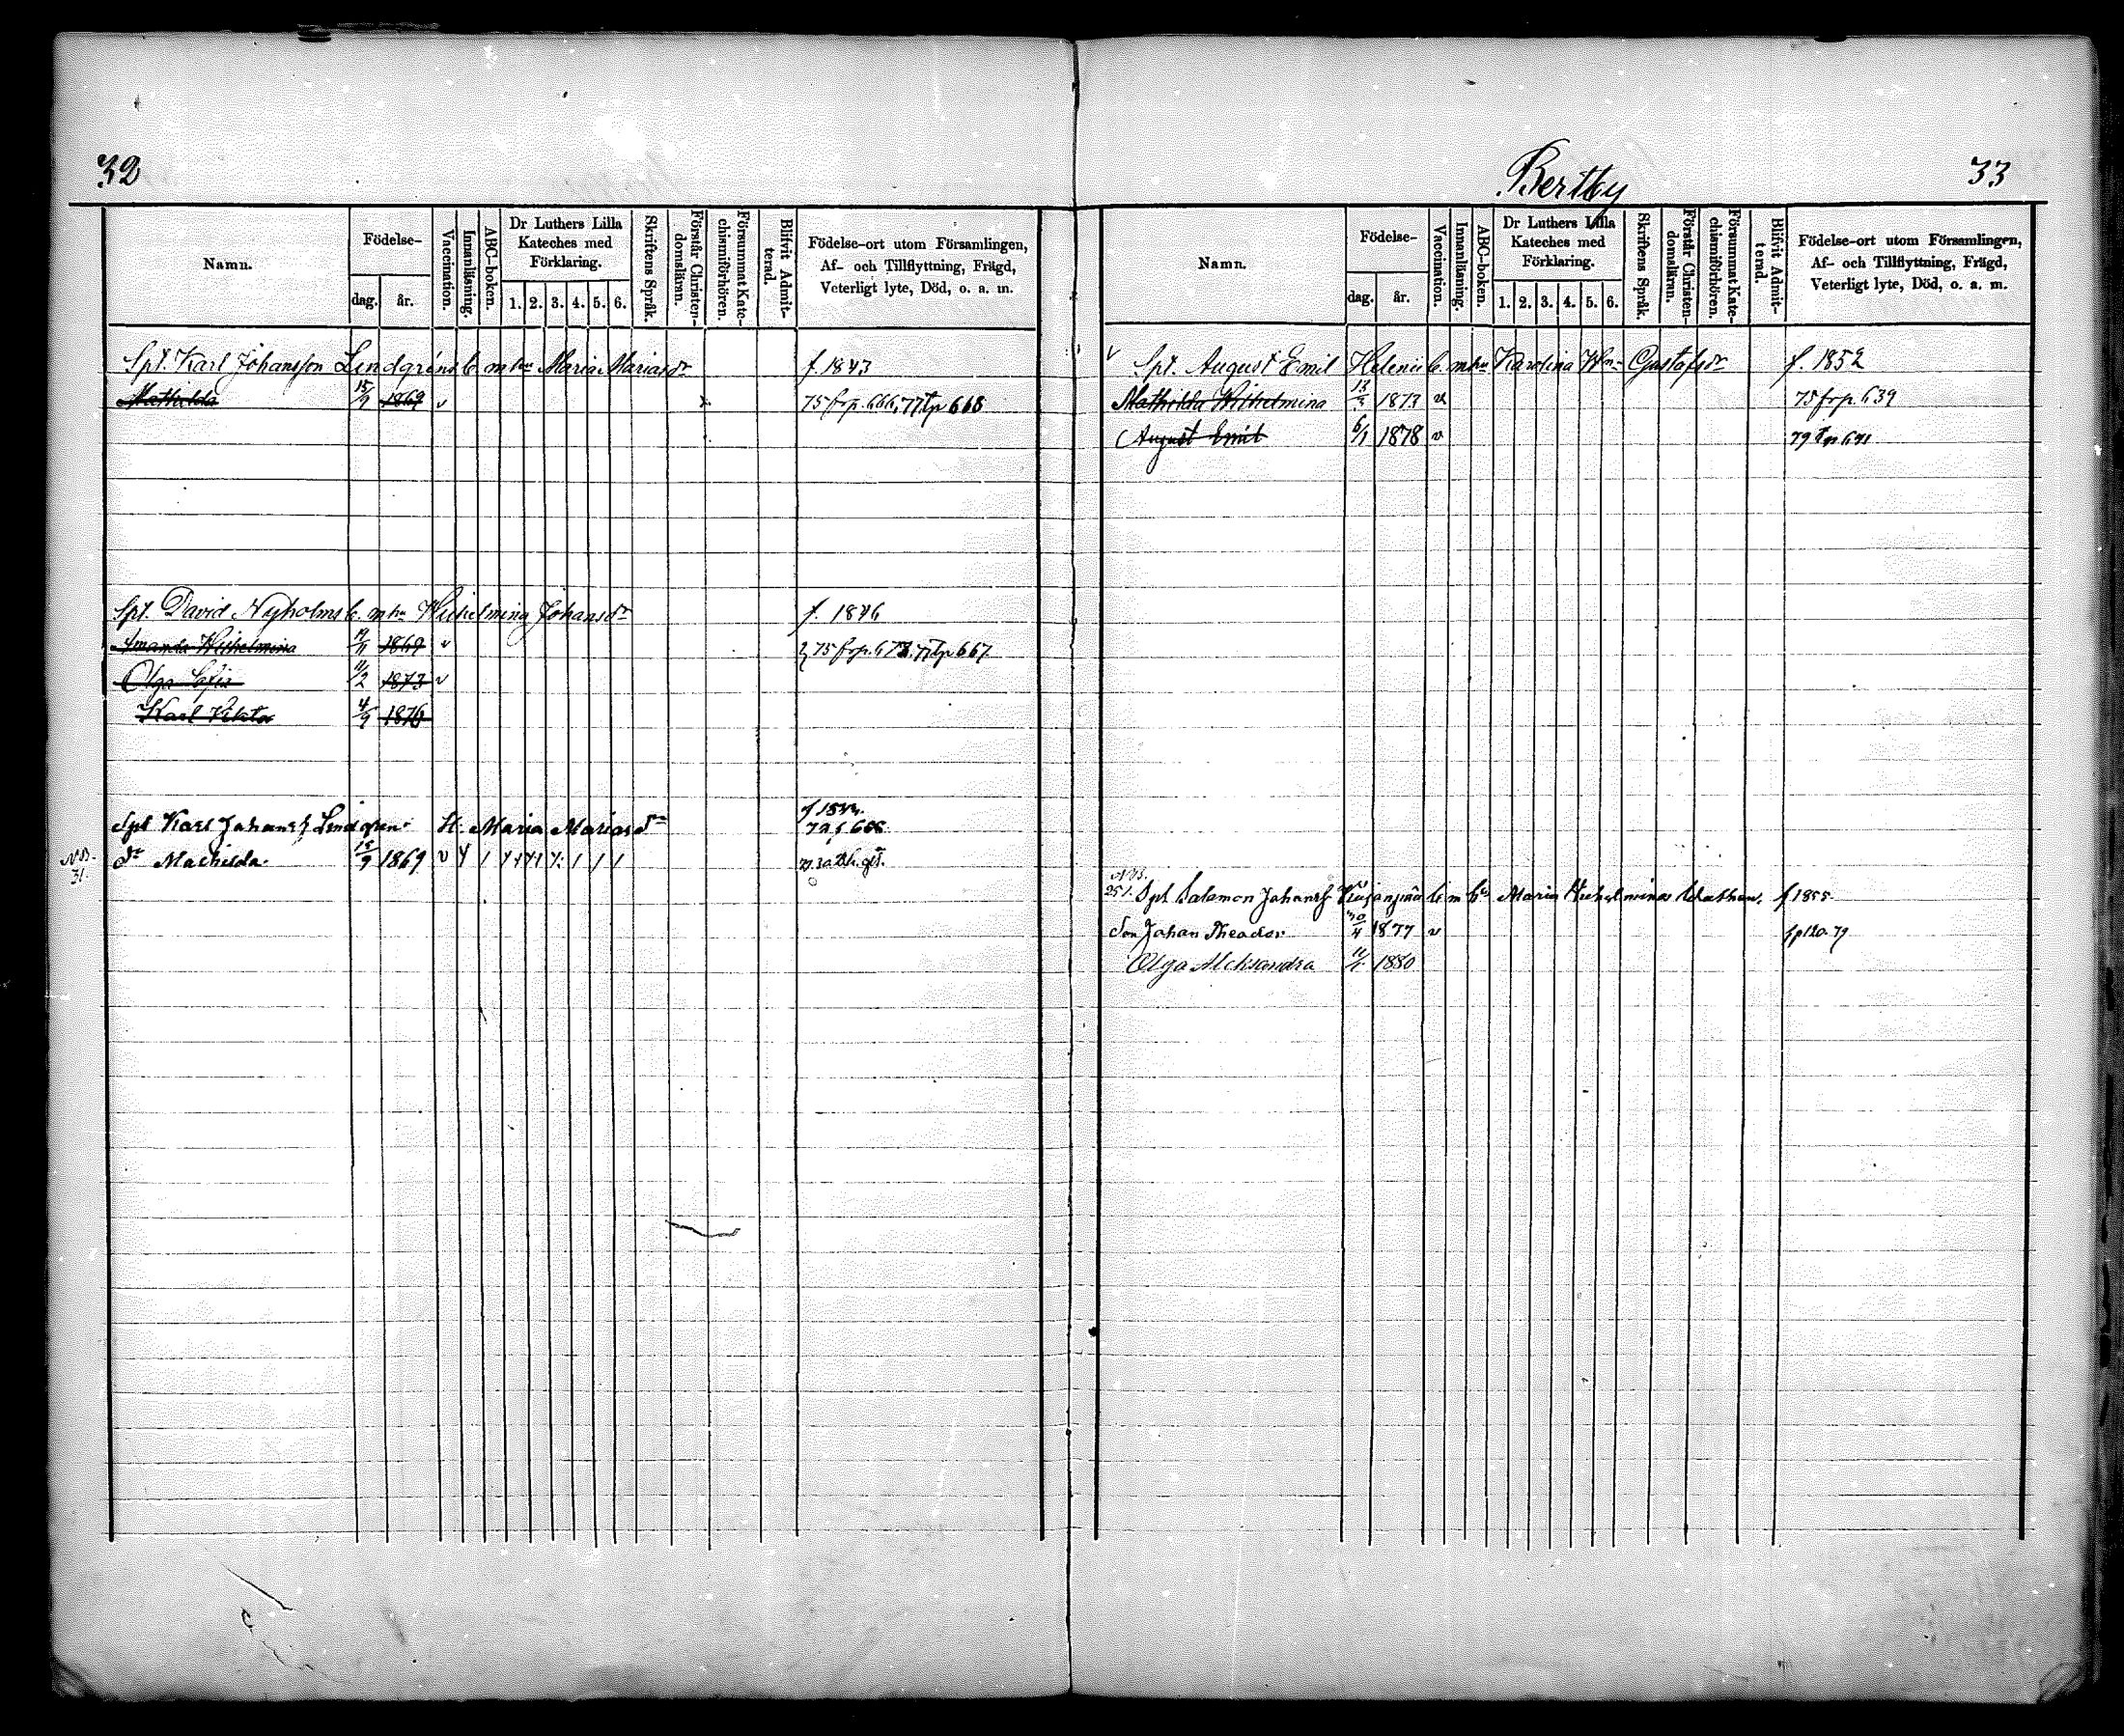 32
Namn.
Födelse-
dag.
år.
Vaccination.
Innanläsning.
ABC-boken.
Dr Luthers Lilla
Kateches med
Förklaring.
1. 2. 3. 4. 5. 6.
Skriftens Språk.
Förstår Christen-
domsläran.
Försummat Kate-
chismiförhören.
Blifvit Admit-
terad.
Födelse-ort utom Församlingen,
Af- och Tillflyttning, Frägd,
Veterligt lyte, Död, o. a. m.
Spt. Karl Johansson Lindgréns b. m hu Maria Mariasdr f. 1843
Mathilda 15/9 1869 v x 75 frp. 666, 77 tp 668
Spt. David Nyholms b. m hu Wilhelmina Johansdr f. 1846
Amanda Wilhelmina 1869 v 75 frp. 77 tp 667
Olga Sofia 11/2 1873 v
Karl Viktor 4/9 1876
Spt Karl Johanss Lindgren H. Maria Mariasdr
NB.
31.
dr Machilda 15/9 1869 v
Bertby
33
Namn.
Födelse-
dag.
år.
Vaccination.
Innanläsning.
ABC-boken.
Dr Luthers Lilla
Kateches med
Förklaring.
1. 2. 3. 4. 5. 6.
Skriftens Språk.
Förstår Christen-
domsläran.
Försummat Kate-
chismiförhören.
Blifvit Admit-
terad.
Födelse-ort utom Församlingen,
Af- och Tillflyttning, Frägd,
Veterligt lyte, Död, o. a. m.
v Spt. August Emil Helenii b. m hu Karolina Wna Gustafsdr f. 1852
Mathilda Wilhelmina 13/3 1873 v 75 frp. 639
August Emil 6/1 1878 v 79 tp 671
NB.
251. Spt Salomon Johanss b m hu Maria f 1855
Son Johan Theodor 30/4 1877 v fp 120. 79
Olga Aleksandra 1880